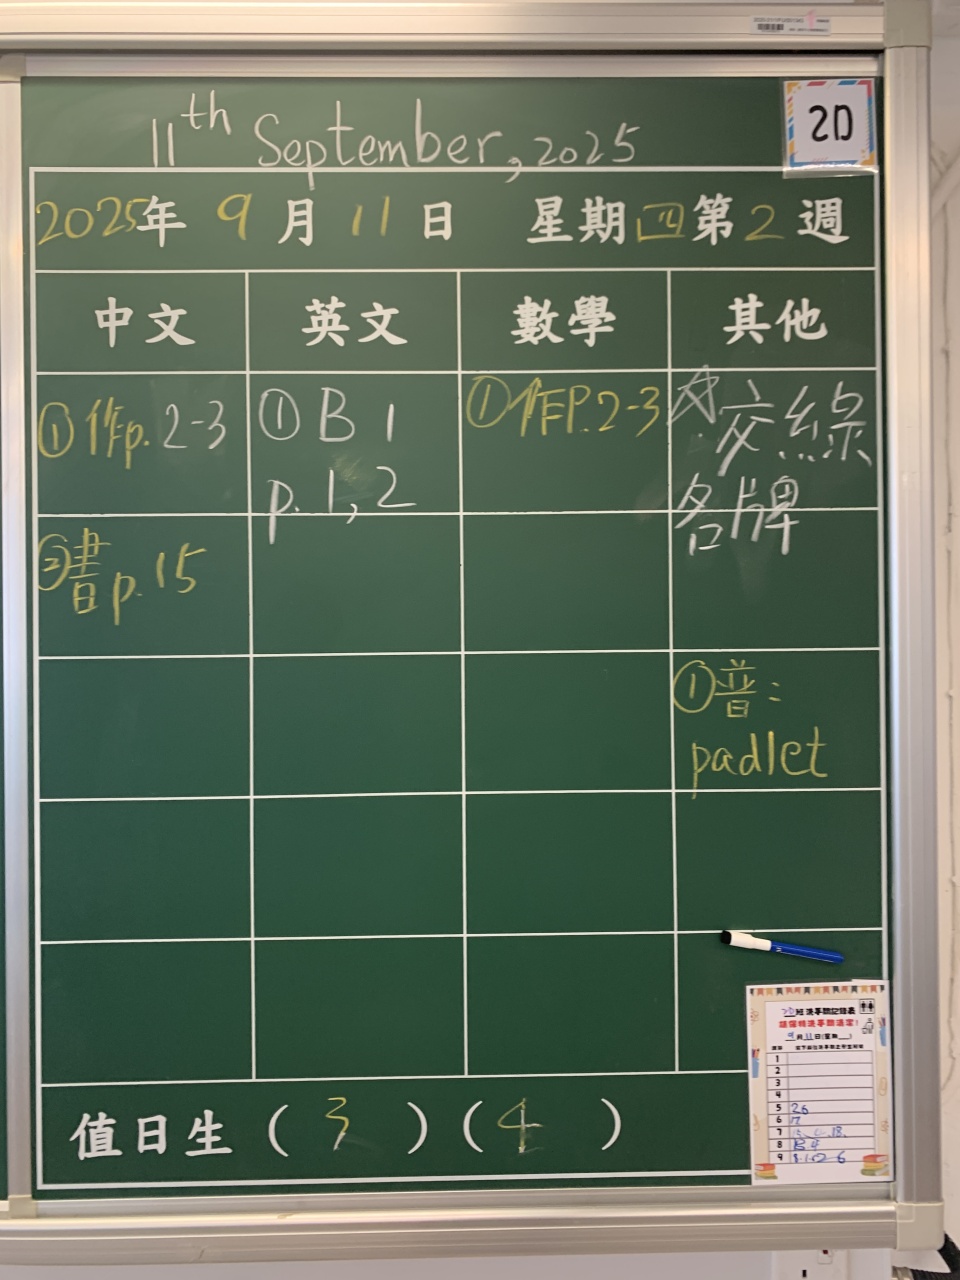 11th September, 2025
2D
2025年 9月 11日 星期四第2週
中文 英文 數學 其他
①作p. 2-3
②書p. 15
①B 1
p. 1, 2
①作P. 2-3
交綠
名牌
①普:
padlet
值日生 ( 3 ) ( 4 )
2D班洗手間記錄表
請保持洗手間清潔!
9月11日(星期__)
1
2
3
4
5 26
6
7
8
9